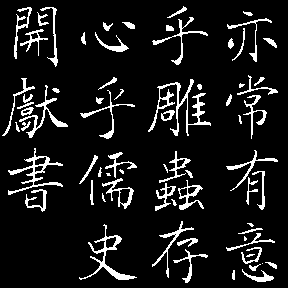 亦常有意
乎雕蟲存
心乎儒史
開獻書